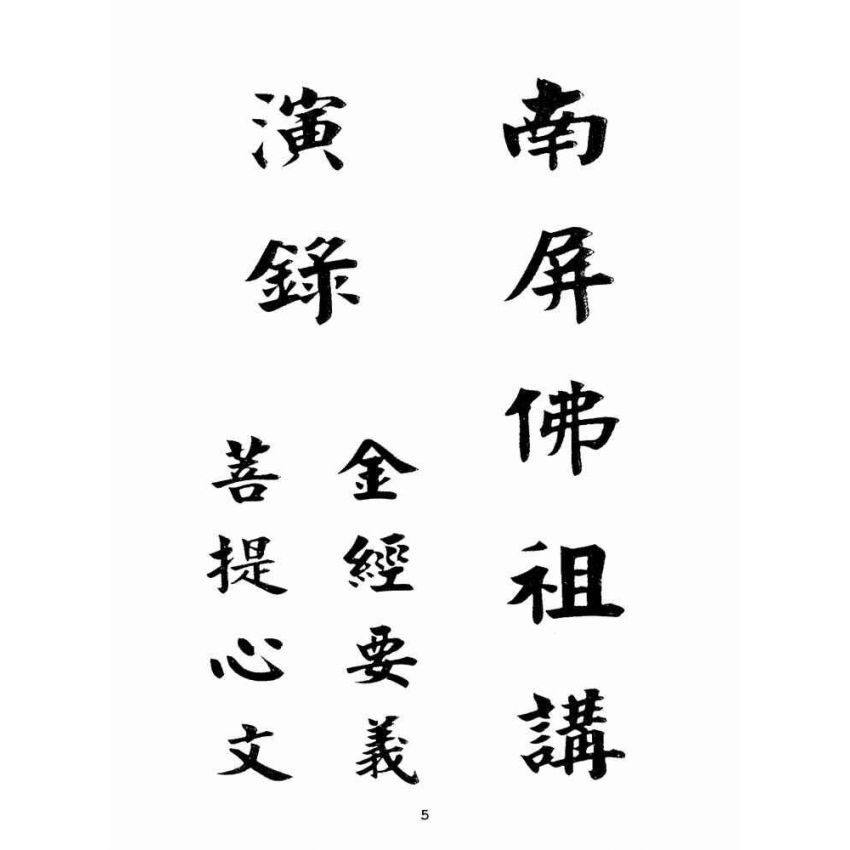 南屏佛祖講
演錄
金經要義
菩提心文
5